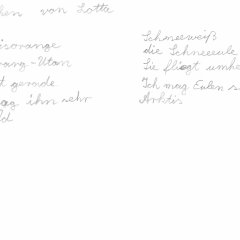 chen von Lotta
isorange
rang-Utan
t gerade.
ag ihn sehr
ld
Schneeweiß
die Schneeeule
Sie fliegt umhe
Ich mag Eulen s
Arktis